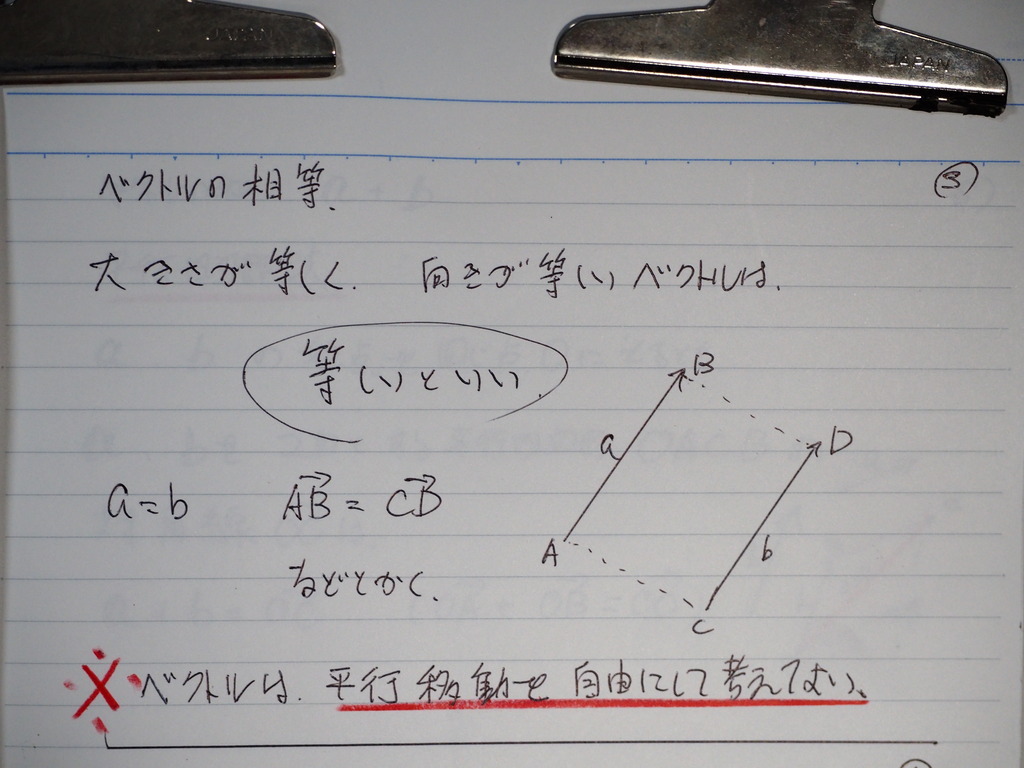 JAPAN
JAPAN
③
ベクトルの相等.
大きさが等しく. 向きが等しいベクトルは.
等しいといい
a=b AB→ = CD→
などとかく.
B
a
D
A
b
C
※ベクトルは. 平行移動を自由にして考えてよい.